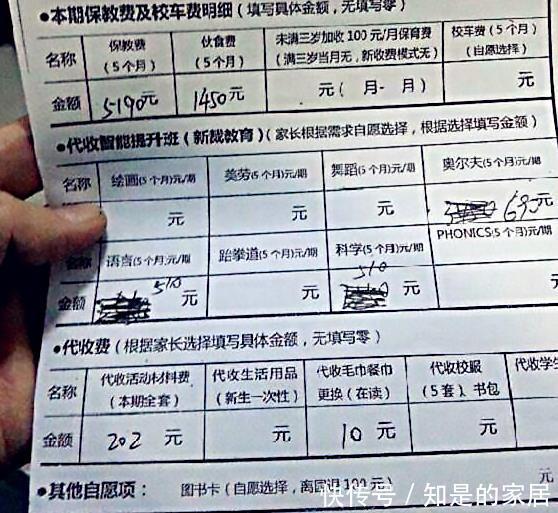 ●本期保教费及校车费明细（填写具体金额，无填写零）
名称 保教费（5个月） 伙食费（5个月） 未满三岁加收100元/月保育费（满三岁当月无，新收费模式无） 校车费（5个月）（自愿选择）
金额 5190元 1450元 元（ 月- 月） 元
●代收智能提升班（新裁教育）（家长根据需求自愿选择，根据选择填写金额）
名称 绘画(5个月)元/期 美劳(5个月)元/期 舞蹈(5个月)元/期 奥尔夫(5个月)元/期
元 元 元 690元
语言(5个月)元/期 跆拳道(5个月)元/期 科学(5个月)元/期 PHONICS(5个月)
金额 510元 元 510元
●代收费（根据家长选择填写具体金额，无填写零）
名称 代收活动材料费（本期全套） 代收生活用品（新生一次性） 代收毛巾餐巾更换（在读） 代收校服（5套）、书包 代收学生
金额 202元 元 10元 元
●其他自愿项： 图书卡（自愿选择，离园退100元） 元
快传号 / 知是的家居